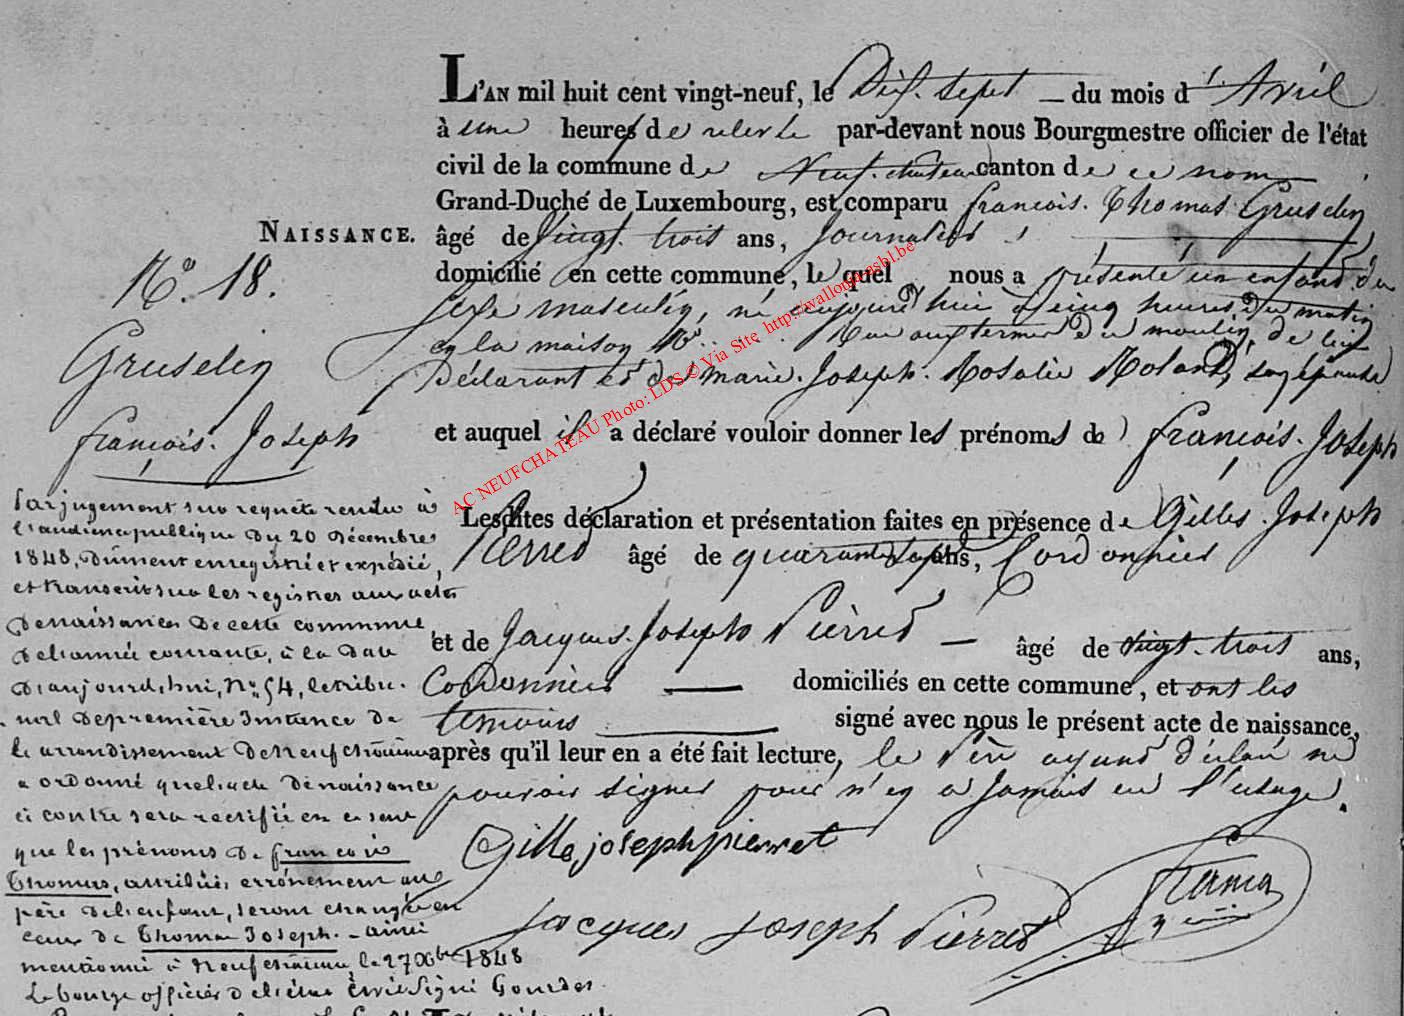 L'AN mil huit cent vingt-neuf, le Dix-sept — du mois d'Avril
à une heures de relevée par-devant nous Bourgmestre officier de l'état
civil de la commune de Neuf-chateau canton de ce nom
Grand-Duché de Luxembourg, est comparu françois. Thomas Gruselin
NAISSANCE. âgé de Vingt-trois ans, Journalier
N.º 18.
domicilié en cette commune, le quel nous a présenté un enfant du
sexe masculin, né aujourd'hui à cinq heures du matin
en la maison N.º . . . . Rue au du moulin, de lui
Gruselin
Déclarant et de marie. Joseph. Rosalie Roland, son épouse
et auquel il a déclaré vouloir donner les prénoms de françois. Joseph
françois. Joseph
Lesdites déclaration et présentation faites en présence de Gilles. Joseph
Pierret âgé de quarante sept ans, Cordonnier
et de Jacques. Joseph Pierret — âgé de vingt-trois ans,
Cordonnier — domiciliés en cette commune, et ont les
temoins signé avec nous le présent acte de naissance,
après qu'il leur en a été fait lecture, le Père ayant déclaré ne
pouvoir signer pour n'en a jamais eu l'usage.
Gille joseph pierret
Jacques Joseph Pierret
Par jugement sur requête rendu à
l'audience publique du 20 Décembre
1848, dûment enregistré et expédié,
et transcrit sur les registres aux actes
de naissances de cette commune
de l'année courante, à la date
d'aujourd'hui, N.º 54, le tribu-
nal de première Instance de
l'arrondissement de Neufchâteau
a ordonné que l'acte de naissance
ci contre sera rectifié en ce sens
que les prénoms de françois
Thomas, attribués erronément au
père de l'enfant, seront changés en
ceux de Thomas Joseph. — ainsi
mentionné à Neufchâteau, le 27 Xbre 1848
Le bourg. officier de l'état civil signé Gourdet.
AC NEUFCHATEAU Photo: LDS © Via Site http://wallonia.asbl.be